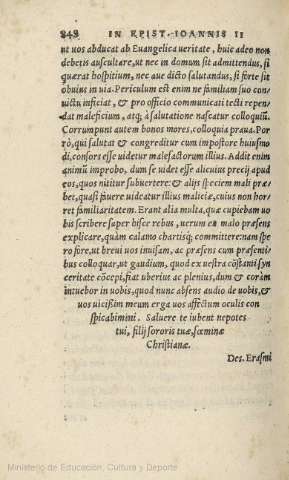 848 IN EPIST. IOANNIS II
ut uos abducat ab Euangelica ueritate, huic adeo non
debetis auscultare, ut nec in domum sit admittendus, si
quærat hospitium, nec aue dicto salutandus, si forte sit
obuius in uia. Periculum est enim ne familiam suo con-
uictu inficiat, & pro officio communicati tecti repen-
dat maleficium, atq; à salutatione nascatur colloquiũ.
Corrumpunt autem bonos mores, colloquia praua. Por
rò, qui salutat & congreditur cum impostore huiusmo
di, consors esse uidetur malefactorum illius. Addit enim
animũ improbo, dum se uidet esse alicuius precij apud
eos, quos nititur subuertere: & alijs speciem mali præ
bet, quasi fauere uideatur illius maliciæ, cuius non hor
ret familiaritatem. Erant alia multa, quæ cupiebam uo
bis scribere super hisce rebus, uerum ea malo præsens
explicare, quàm calamo chartisq; committere: nam spe
ro fore, ut breui uos inuisam, ac præsens cum præsenti
bus colloquar, ut gaudium, quod ex uestra cõstanti syn
ceritate cõcepi, fiat uberius ac plenius, dum & coràm
intuebor in uobis, quod nunc absens audio de uobis, &
uos uicissim meum erga uos affectum oculis con
spicabimini. Saluere te iubent nepotes
tui, filij sororis tuæ, fœminæ
Christianæ.
Des. Erasmi
Ministerio de Educación, Cultura y Deporte